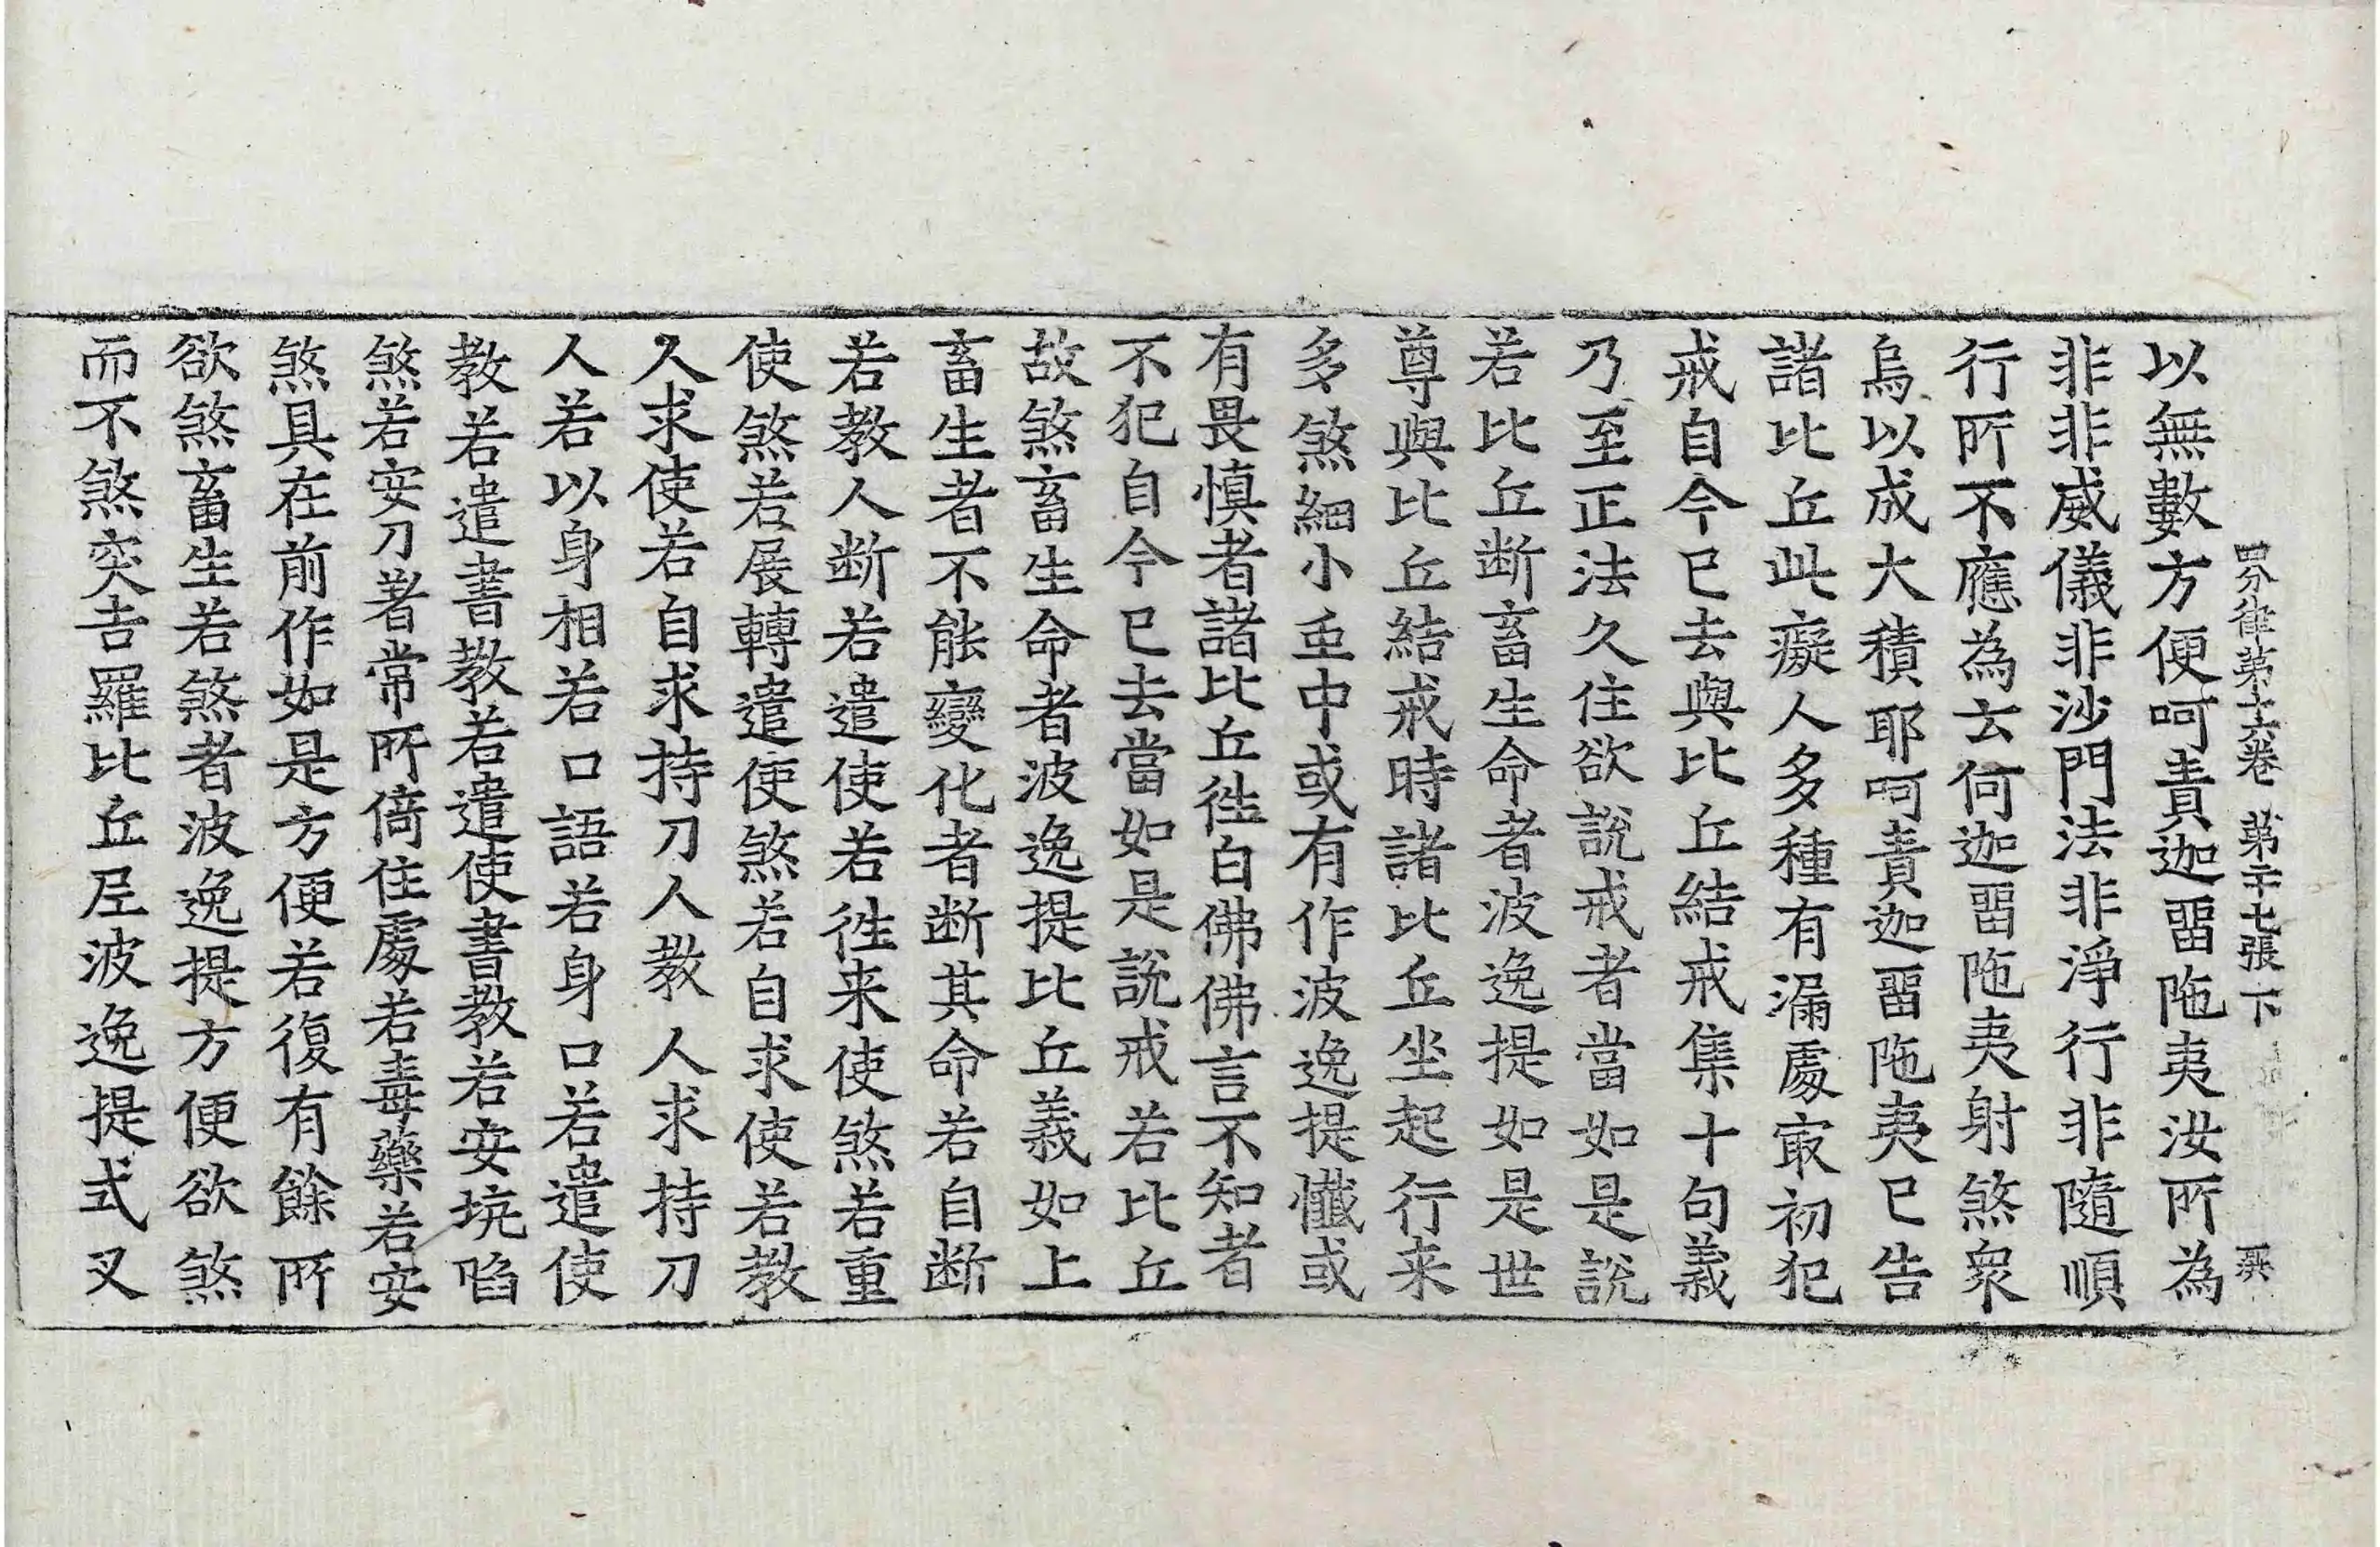 四分律第十六卷 第二十七張 下
以無數方便呵責迦留陁夷汝所為
非非威儀非沙門法非淨行非隨順
行所不應為云何迦留陁夷射煞衆
烏以成大積耶呵責迦留陁夷已告
諸比丘此癡人多種有漏處㝡初犯
戒自今已去與比丘結戒集十句義
乃至正法久住欲說戒者當如是說
若比丘断畜生命者波逸提如是世
尊與比丘結戒時諸比丘坐起行来
多煞細小虫中或有作波逸提懺或
有畏慎者諸比丘徃白佛佛言不知者
不犯自今已去當如是說戒若比丘
故煞畜生命者波逸提比丘義如上
畜生者不能變化者断其命若自断
若教人断若遣使若徃来使煞若重
使煞若展轉遣使煞若自求使若教
人求使若自求持刀人教人求持刀
人若以身相若口語若身口若遣使
教若遣書教若遣使書教若安坑陷
煞若安刀著常所倚住處若毒藥若安
煞具在前作如是方便若復有餘所
欲煞畜生若煞者波逸提方便欲煞
而不煞突吉羅比丘尼波逸提式叉